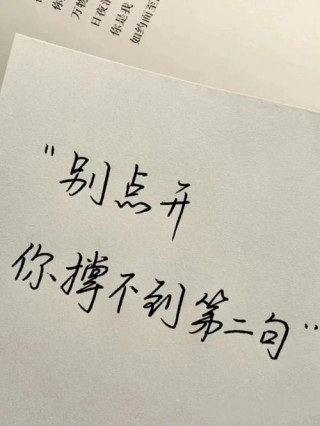 万物
日夜
你是我
如约而至
"别点开
你搏不到第二句"